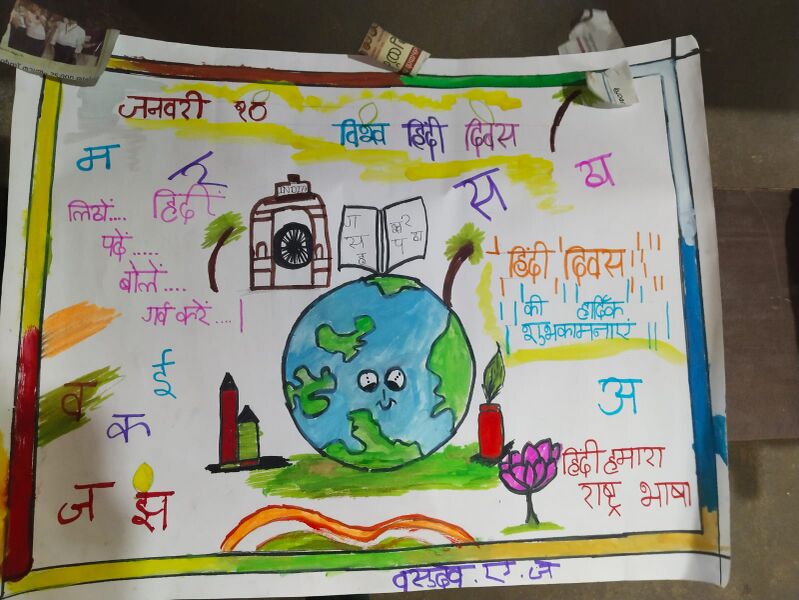 जनवरी १०
विश्व हिंदी दिवस
म
र
स
य
हिंदी
लिखें....
पढ़ें.....
बोलें....
गर्व करें....|
INDIA
ज
स
ह
प य
हिंदी दिवस
की हार्दिक
शुभकामनाएं
ई
व
क
अ
ज
स
हिंदी हमारा
राष्ट्र भाषा
वसुदेव. ए. ज